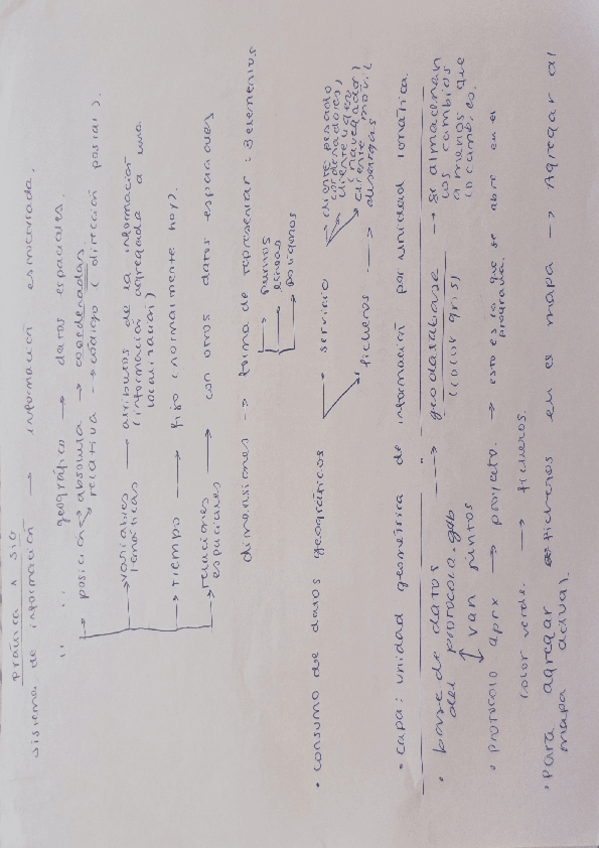 Práctica 1 SIG
sistema de información → información estructurada.
" " geográfico → datos espaciales.
→ posición → absoluta → coordenadas.
relativa → código (dirección postal).
→ variables temáticas → atributos de la información (información agregada a una localización)
→ tiempo → fijo (normalmente hoy).
→ relaciones espaciales → con otros datos espaciales
dimensiones → forma de representar: 3 elementos
→ puntos
→ líneas
→ polígonos
• consumo de datos geográficos → servicio → cliente pesado (ordenadores), cliente ligero (navegador) cliente móvil
→ ficheros → descargas
• capa: unidad geométrica de información por unidad temática.
• base de datos → geodatabase → se almacenan los cambios a menos que lo cambies.
del protocolo.gdb (color gris)
↕ van juntos
• protocolo aprx → proyecto. → esto es lo que se abre en el programa.
color verde. → ficheros.
• Para agregar ficheros en el mapa → Agregar al mapa actual.